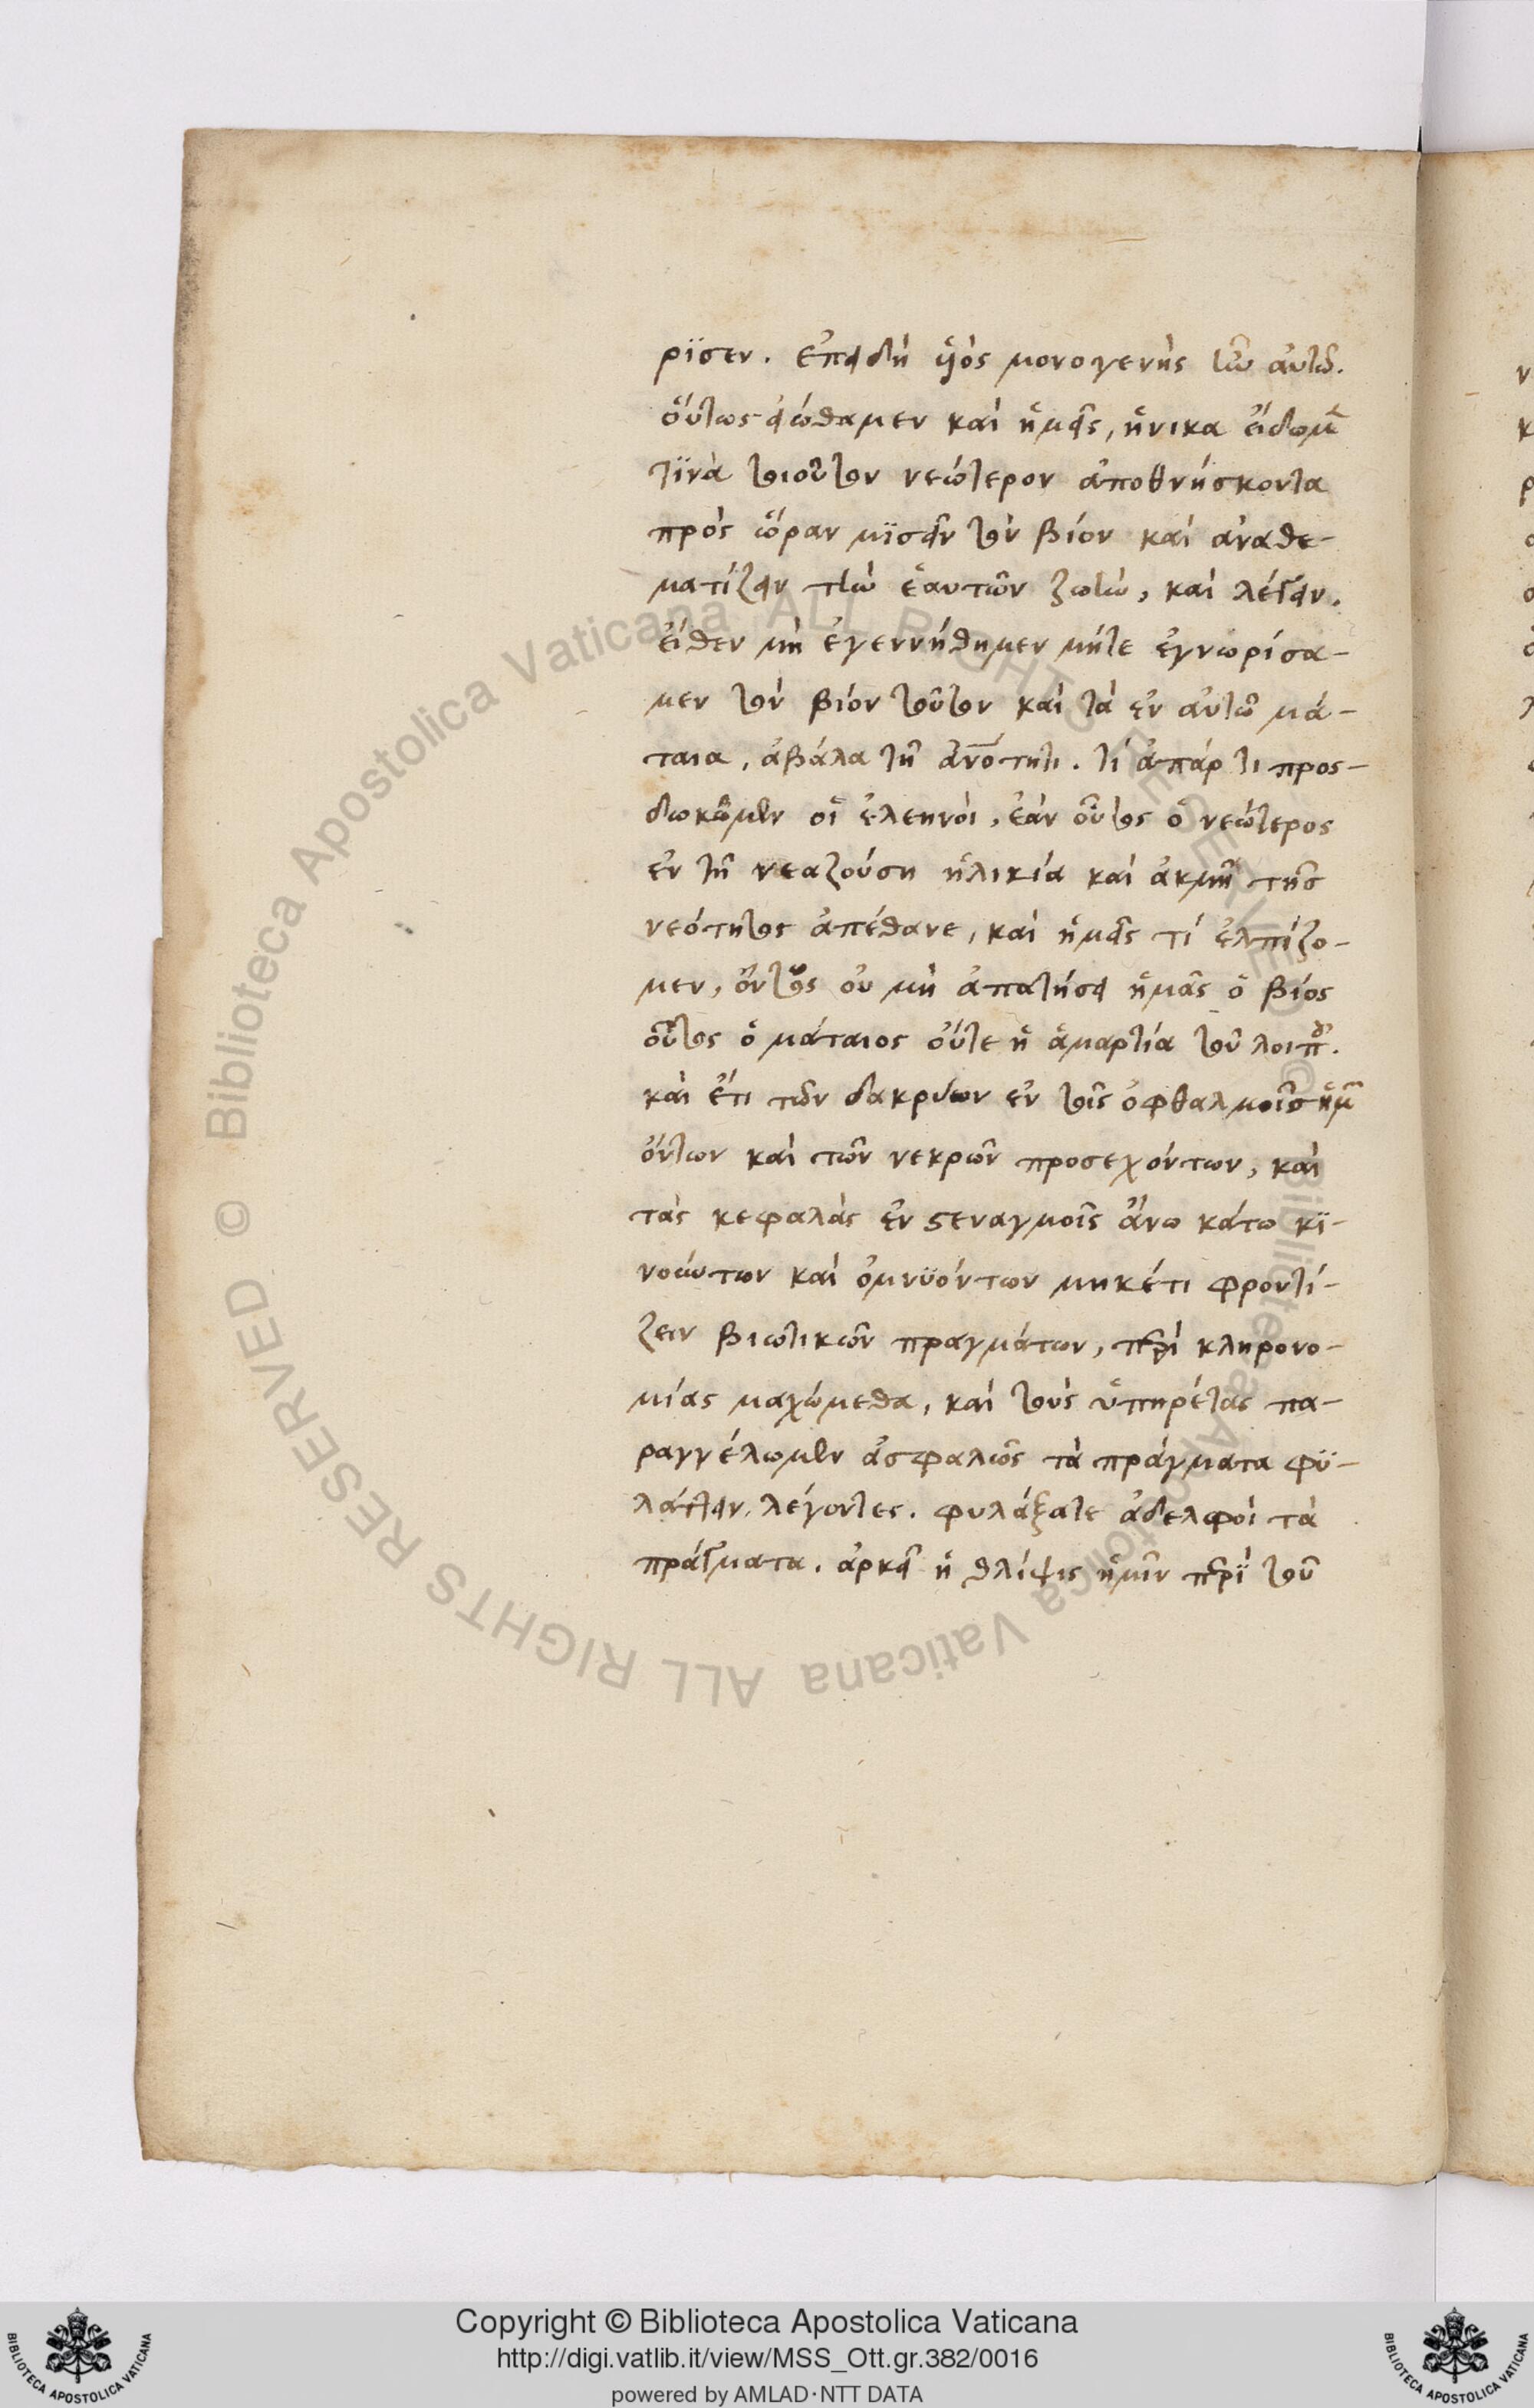 ρϊσεν. ἐπειδὴ υἱὸς μονογενὴς ἦν αὐτῶ.
οὕτως εἰώθαμεν καὶ ἡμεῖς, ἡνικα εἴδομεν
τϊνὰ τοιοῦτον νεώτερον ἀποθνήσκοντα
πρὸς ὥραν μϊσεῖν τὸν βίον καὶ ἀναθε-
ματίζειν τὴν ἑαυτῶν ζωὴν, καὶ λέγειν.
εἴθεν μὴ ἐγεννήθημεν μήτε ἐγνωρίσα-
μεν τὸν βίον τοῦτον καὶ τὰ ἐν αὐτῶ μά-
ταια, ἀβάλα τῆ ἀνοτητι. τί ἀπάρτι προς-
δωκῶμεν οἱ ἐλεηνοὶ, ἐὰν οὗτος ὁ νεώτερος
ἐν τῆ νεαζούση ἡλικία καὶ ἀκμῆ τῆς
νεότητος ἀπέθανε, καὶ ἡμεῖς τί ἐλπίζο-
μεν, ὄντως οὐ μὴ ἀπατήσει ἡμᾶς ὁ βίος
οὗτος ὁ μάταιος οὔτε ἡ ἁμαρτία τοῦ λοιποῦ.
καὶ ἔτι τῶν δακρύων ἐν τοῖς ὀφθαλμοῖς ἡμῶν
ὄντων καὶ τῶν νεκρῶν προσεχόντων, καὶ
τὰς κεφαλὰς ἐν στεναγμοῖς ἄνω κάτω κϊ-
νούντων καὶ ὀμνϋόντων μηκέτι φροντί-
ζειν βιωτικῶν πραγμάτων, περὶ κληρονο-
μίας μαχώμεθα, καὶ τοὺς ὑπηρέτας πα-
ραγγέλωμεν ἀσφαλῶς τὰ πράγματα φϋ-
λάττειν, λέγοντες. φυλάξατε ἀδελφοὶ τὰ
πράγματα. ἀρκεῖ ἡ θλίψις ἡμῖν περϊ τοῦ
Copyright © Biblioteca Apostolica Vaticana
http://digi.vatlib.it/view/MSS_Ott.gr.382/0016
powered by AMLAD·NTT DATA
BIBLIOTECA APOSTOLICA VATICANA
BIBLIOTECA APOSTOLICA VATICANA
© Biblioteca Apostolica Vaticana ALL RIGHTS RESERVED
© Biblioteca Apostolica Vaticana ALL RIGHTS RESERVED